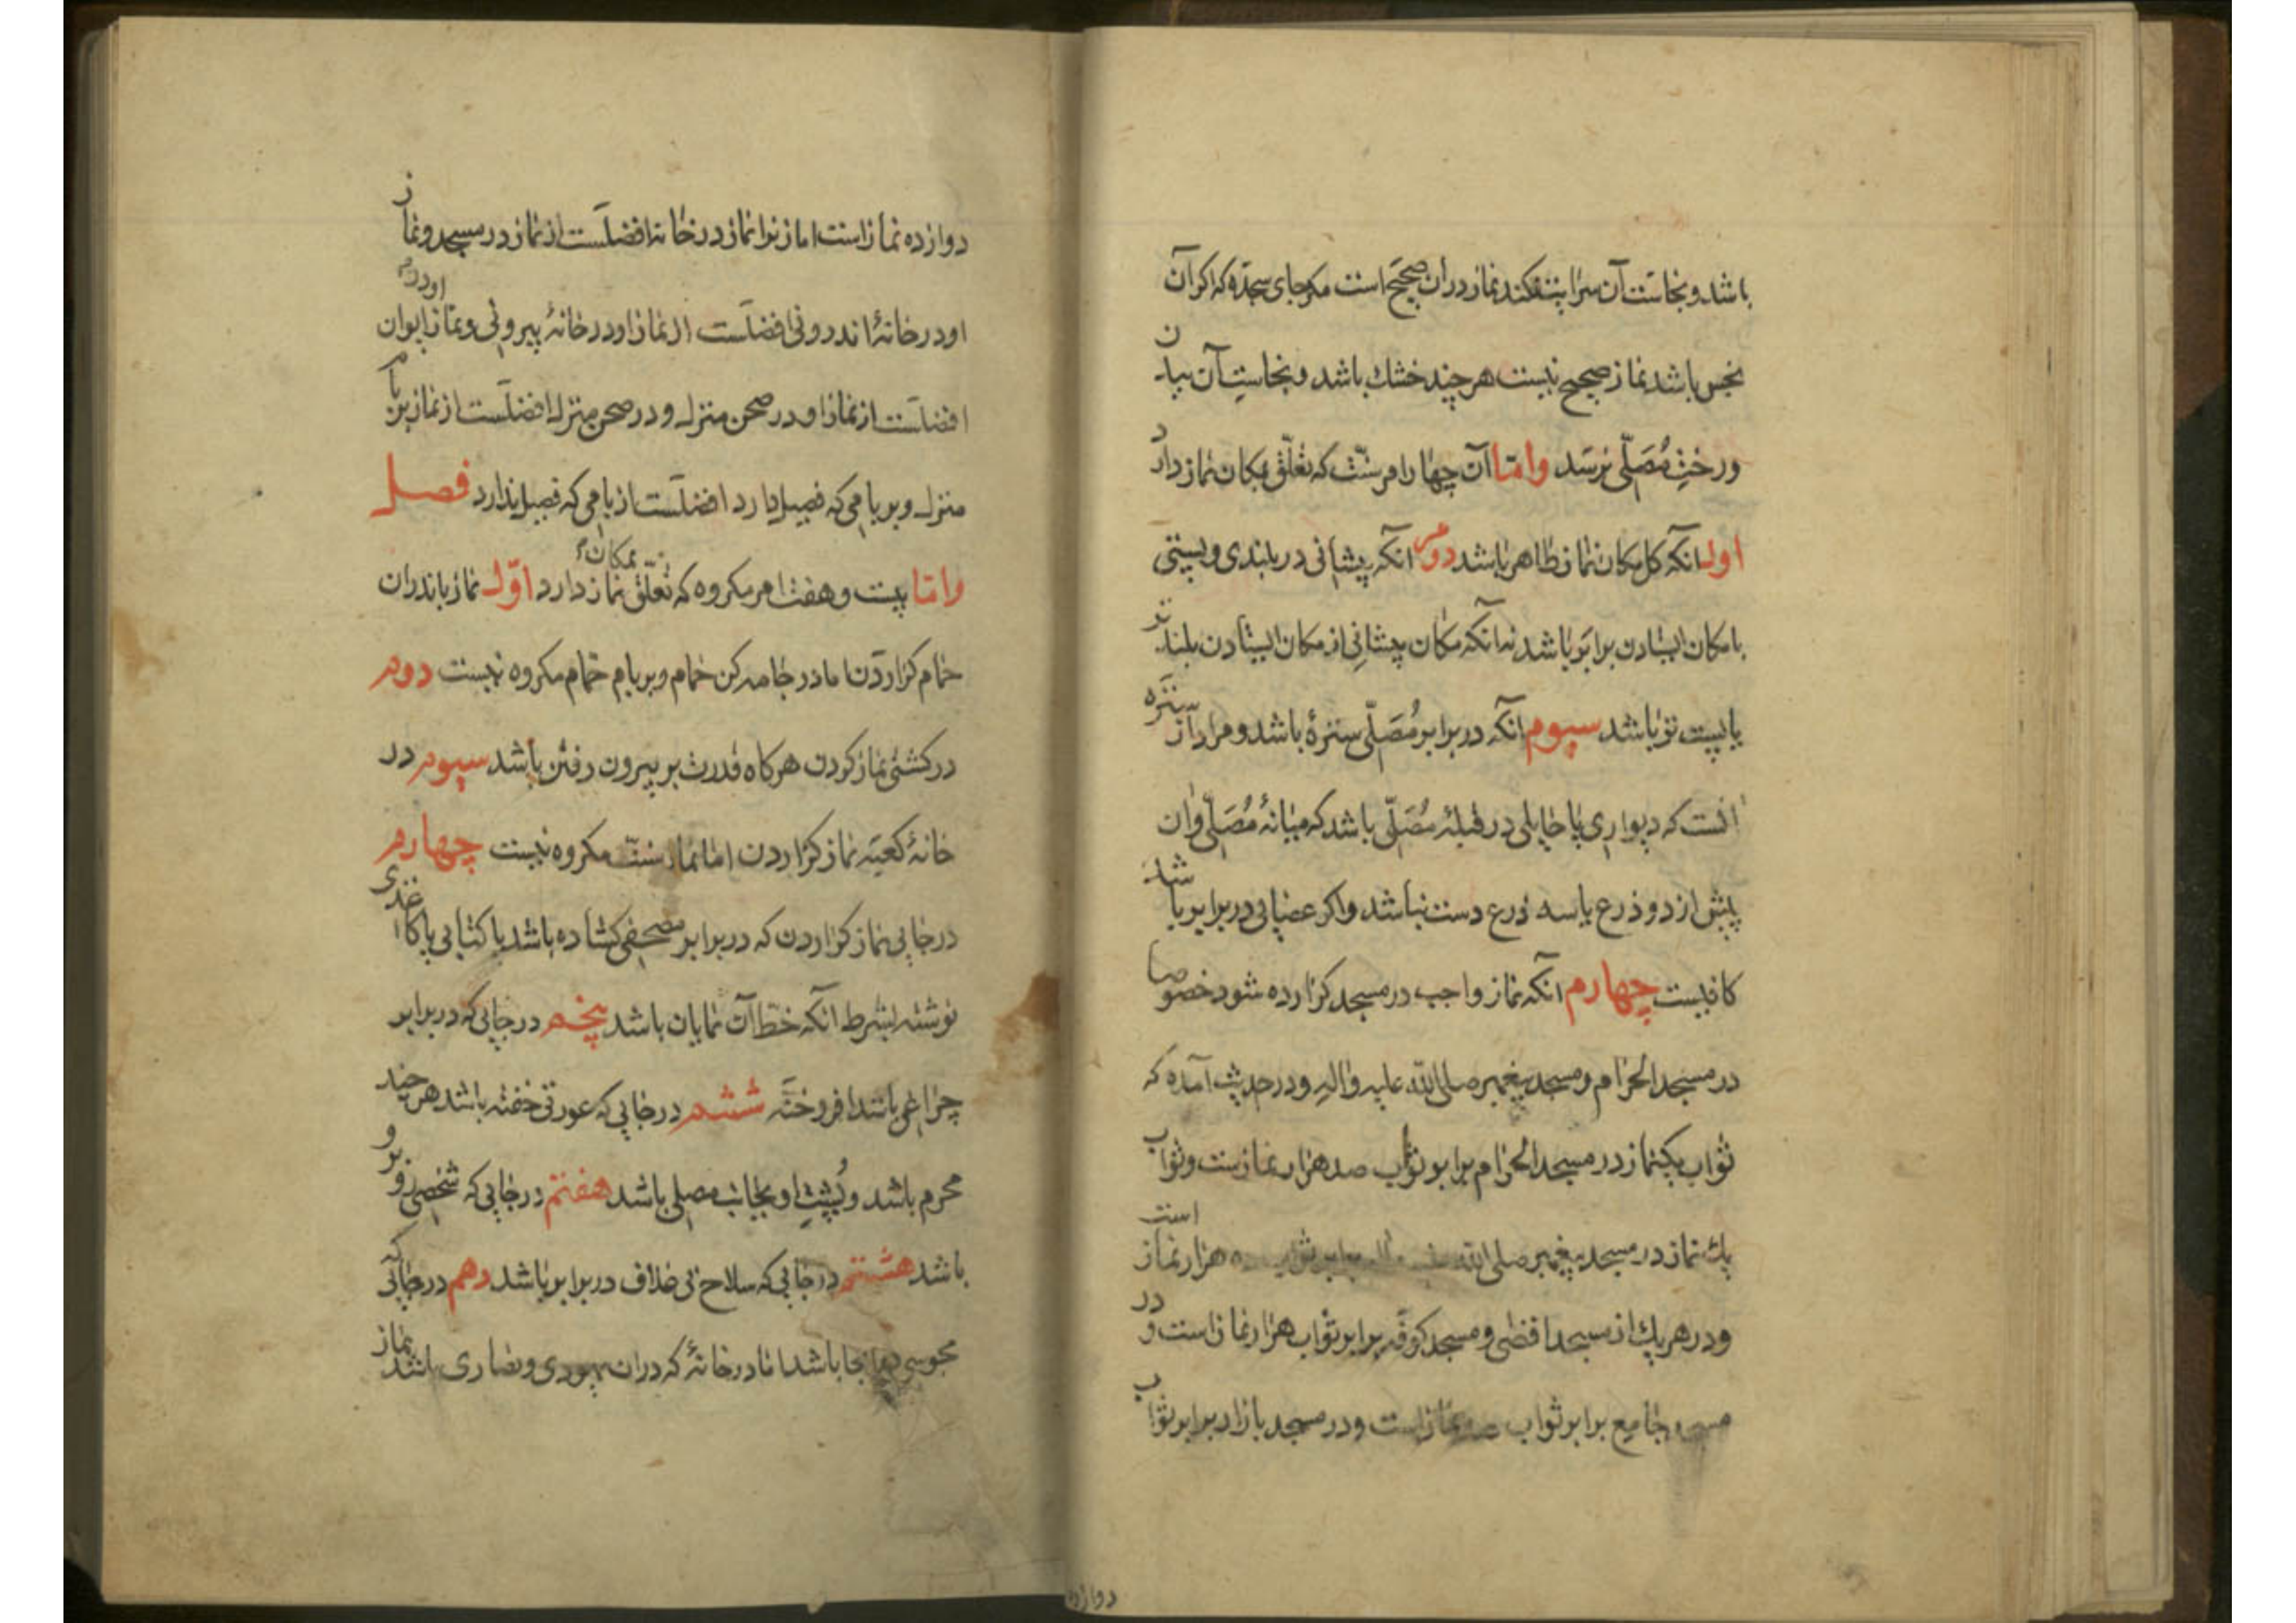 باشد و نجاست آن سرایت نکند نماز در ان صحیح است مکر جای سجده که اکر آن
نجس باشد نماز صحیح نیست هر چند خشك باشد و نجاست آن ببدن
و رخت مُصَلّی نرسد و امّا آن چهار امر سنّت که تعلّق بمکان نماز دارد
اول انکه کل مکان نماز طاهر باشد دوم انکه پیشانی در بلندی و پستی
با مکان ایستادن برابر باشد نه انکه مکان پیشانی از مکان ایستادن بلند تر
یا پست تر باشد سیوم انکه در برابر مُصَلّی سترهٔ باشد و مراد از ستره
انست که دیواری یا حایلی در قبلهٔ مُصَلّی باشد که میانهٔ مُصَلّی و ان
پیش از دو ذرع یا سه ذرع دست نباشد و اکر عصایی در برابر باشد
کافیست چهارم انکه نماز واجب در مسجد کزارده شود خصوصا
در مسجد الحرام و مسجد پیغمبر صلی الله علیه و اله و در حدیث آمده که
ثواب یکنماز در مسجد الحرام برابر ثواب صد هزار نمازست و ثواب
یك نماز در مسجد پیغمبر صلی الله برابر ثواب ده هزار نماز است
و در هر یك از مسجد اقصی و مسجد کوفه برابر ثواب هزار نماز است و در
مسجد جامع برابر ثواب صد نماز است و در مسجد بازار برابر ثواب
دوازده
دوازده نماز است اما زنرا نماز در خانه افضلست از نماز در مسجد و نماز
او در خانهٔ اندرونی افضلست از نماز او در خانهٔ بیرونی و نماز او در ایوان
افضلست از نماز او در صحن منزل و در صحن منزل افضلست از نماز بر بام
منزل و بر بامی که فصیل دارد افضلست از بامی که فصیل ندارد فصل
و امّا بیست و هفت امر مکروه که تعلّق بمکان نماز دارد اوّل نماز باندران
حمام کزاردن اما در جامه کن حمام و بر بام حمام مکروه نیست دوم
در کشتی نماز کردن هر کاه قدرت بر بیرون رفتن باشد سیوم در
خانهٔ کعبه نماز کزاردن اما نماز سنت مکروه نیست چهارم
در جایی نماز کزاردن که در برابر مصحفی کشاده باشد یا کتابی یا کاغذی
نوشته بشرط آنکه خط آن نمایان باشد پنجم در جایی که در برابر
چراغی باشد افروخته ششم در جایی که عورتی خفته باشد هر چند
محرم باشد و پُشتِ او بجانب مصلی باشد هفتم در جایی که شخصی رو برو
باشد هشتم در جایی که سلاح بی غلاف در برابر باشد دهم در جایی که
مجوسی در انجا باشد اما در خانهٔ که در ان یهودی و نصاری باشد نماز